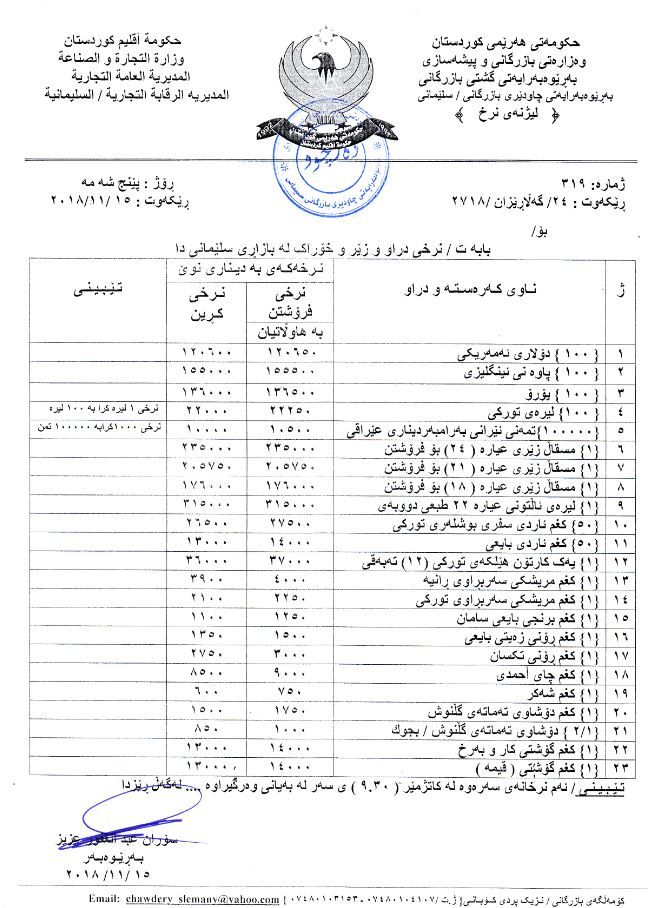 حکومەتی هەرێمی کوردستان
وەزارەتی بازرگانی و پیشەسازی
بەڕێوەبەرایەتی گشتی بازرگانی
بەڕێوەبەرایەتی چاودێری بازرگانی / سلێمانی
﴿ لیژنەی نرخ ﴾
حكومة أقليم كوردستان
وزارة التجارة و الصناعة
المديرية العامة التجارية
المديريه الرقابة التجارية / السليمانية
ژمارە: ٣١٩
ڕێکەوت : ٢٤/ گەڵاڕێزان /٢٧١٨
ڕۆژ : پێنج شە مە
ڕێکەوت : ١٥ /٢٠١٨/١١
بۆ/
بابە ت / نرخی دراو و زێر و خۆراک لە بازاڕی سلێمانی دا
ژ ناوی کەرەستە و دراو نرخەکەی بە دیناری نوێ تێبینی
نرخی فرۆشتن بە هاوڵاتیان نرخی کڕین
١ {١٠٠ } دۆلاری ئەمەریکی ١٢٠٦٥٠ ١٢٠٦٠٠
٢ {١٠٠ } پاوە نی ئینگلیزی ١٥٥٥٠٠ ١٥٥٠٠٠
٣ {١٠٠ } یۆرۆ ١٣٦٥٠٠ ١٣٦٠٠٠
٤ {١٠٠ } لیرەی تورکی ٢٢٢٥٠ ٢٢٠٠٠ نرخی ١ لیرە کرا بە ١٠٠ لیرە
٥ {١٠٠٠٠٠}تمەنی ئێرانی بەرامبەردیناری عێراقی ١٠٥٠٠ ١٠٠٠٠ نرخی ١٠٠٠کرابە ١٠٠٠٠٠ تمن
٦ {١} مسقاڵ زێری عیارە ( ٢٤) بۆ فرۆشتن ٢٣٥٠٠٠ ٢٣٥٠٠٠
٧ {١} مسقاڵ زێری عیارە ( ٢١) بۆ فرۆشتن ٢٠٥٧٥٠ ٢٠٥٧٥٠
٨ {١} مسقاڵ زێری عیارە ( ١٨) بۆ فرۆشتن ١٧٦٠٠٠ ١٧٦٠٠٠
٩ {١} لیرەی ئاڵتونی عیارە ٢٢ طبعی دووبەی ٣١٥٠٠٠ ٣١٥٠٠٠
١٠ {٥٠} کغم ئاردی سفری بوشلەری تورکی ٢٧٥٠٠ ٢٦٥٠٠
١١ {٥٠} کغم ئاردی بایعی ١٤٠٠٠ ١٣٠٠٠
١٢ {١} یەک کارتۆن هێلکەی تورکی (١٢) تەبەقی ٣٧٠٠٠ ٣٦٠٠٠
١٣ {١} کغم مریشکی سەربڕاوی ڕانیە ٤٠٠٠ ٣٩٠٠
١٤ {١} کغم مریشکی سەربڕاوی تورکی ٢٢٥٠ ٢١٠٠
١٥ {١} کغم برنجی بایعی سامان ١٢٥٠ ١١٠٠
١٦ {١} کغم ڕۆنی زەیتی بایعی ١٥٠٠ ١٣٥٠
١٧ {١} کغم ڕۆنی تکسان ٣٠٠٠ ٢٧٥٠
١٨ {١} کغم چای أحمدی ٩٠٠٠ ٨٥٠٠
١٩ {١} کغم شەکر ٧٥٠ ٦٠٠
٢٠ {١} کغم دۆشاوی تەماتەی گڵنوش ١٧٥٠ ١٥٠٠
٢١ {٢/١ } دۆشاوی تەماتەی گڵنوش / بچوک ١٠٠٠ ٨٥٠
٢٢ {١} کغم گۆشتی کار و بەرخ ١٤٠٠٠ ١٣٠٠٠
٢٣ {١} کغم گۆشتی ( قیمە ) ١٤٠٠٠ ١٣٠٠٠
تێبینی / ئەم نرخانەی سەرەوە لە کاتژمێر ( ٩.٣٠ ) ی سەر لە بەیانی وەرگیراوە .... لەگەڵ ڕێزدا
سۆران عبد الغفور عزیز
بەڕێوەبەر
١٥ /٢٠١٨/١١
کۆمەڵگەی بازرگانی / نزیک پردی کۆبانی{ ژ.ت /٠٧٤٨٠١٠٤١٠٧ - ٠٧٤٨٠١٠٣١٥٣ } Email: chawdery_slemany@yahoo.com